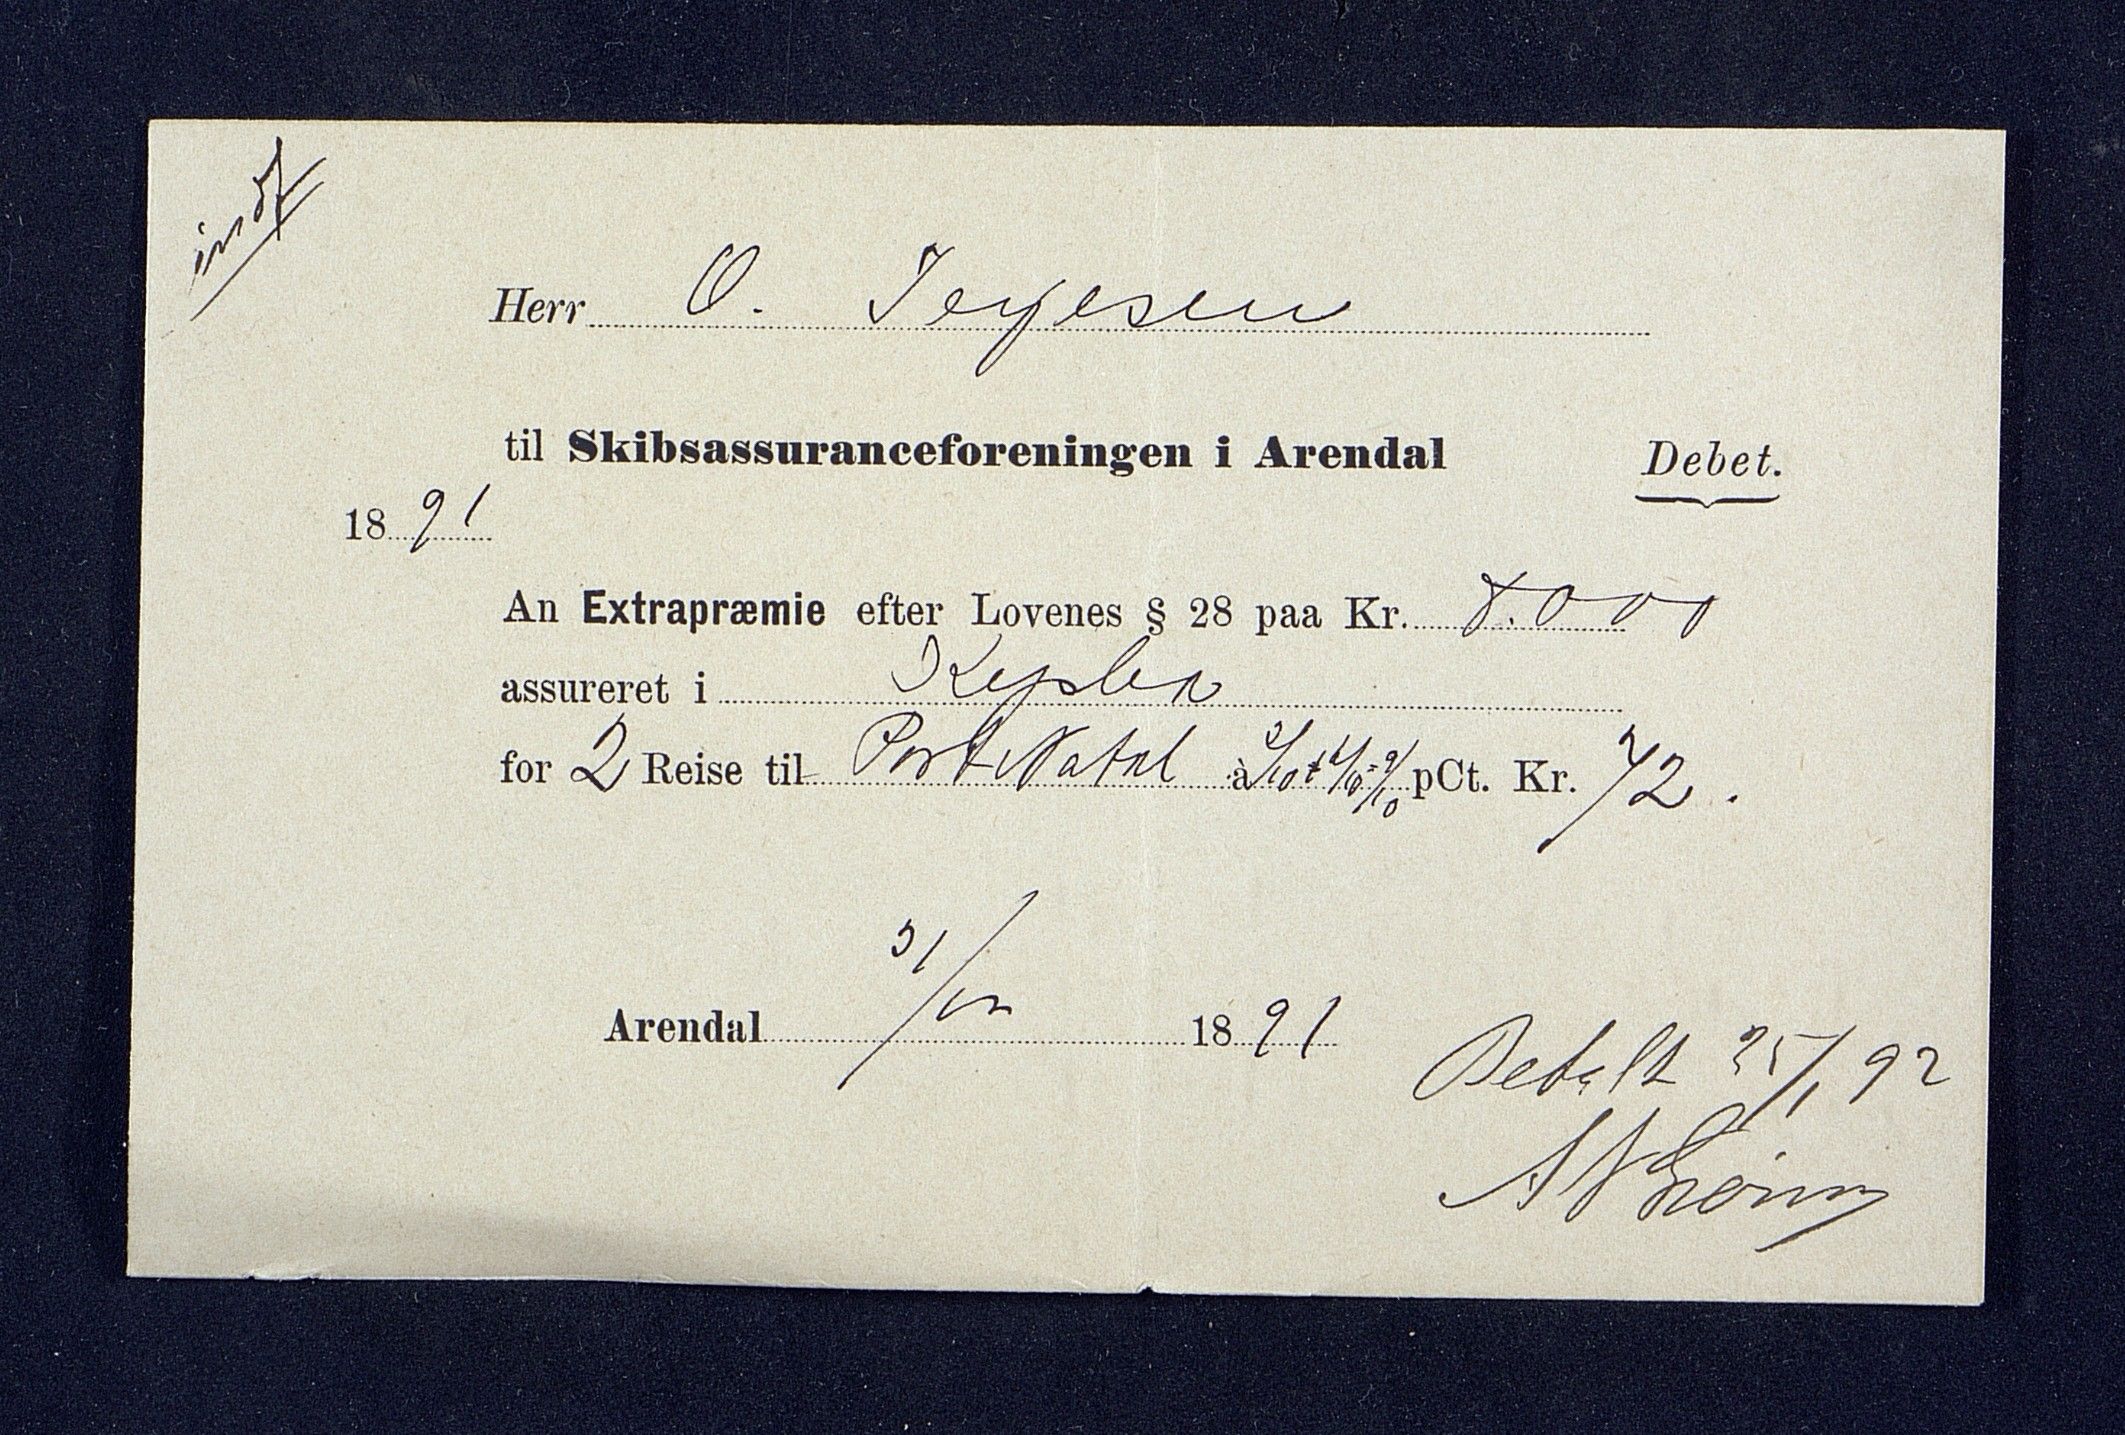 indf
Herr O. Terjesen
til Skibsassuranceforeningen i Arendal Debet.
1891
An Extrapræmie efter Lovenes § 28 paa Kr. 8.000
assureret i Kepler
for 2 Reise til Port Natal à 5/10 + 4/10 = 9/10 pCt. Kr. 72.
Arendal 31/12 1891
Betalt 25/1 92